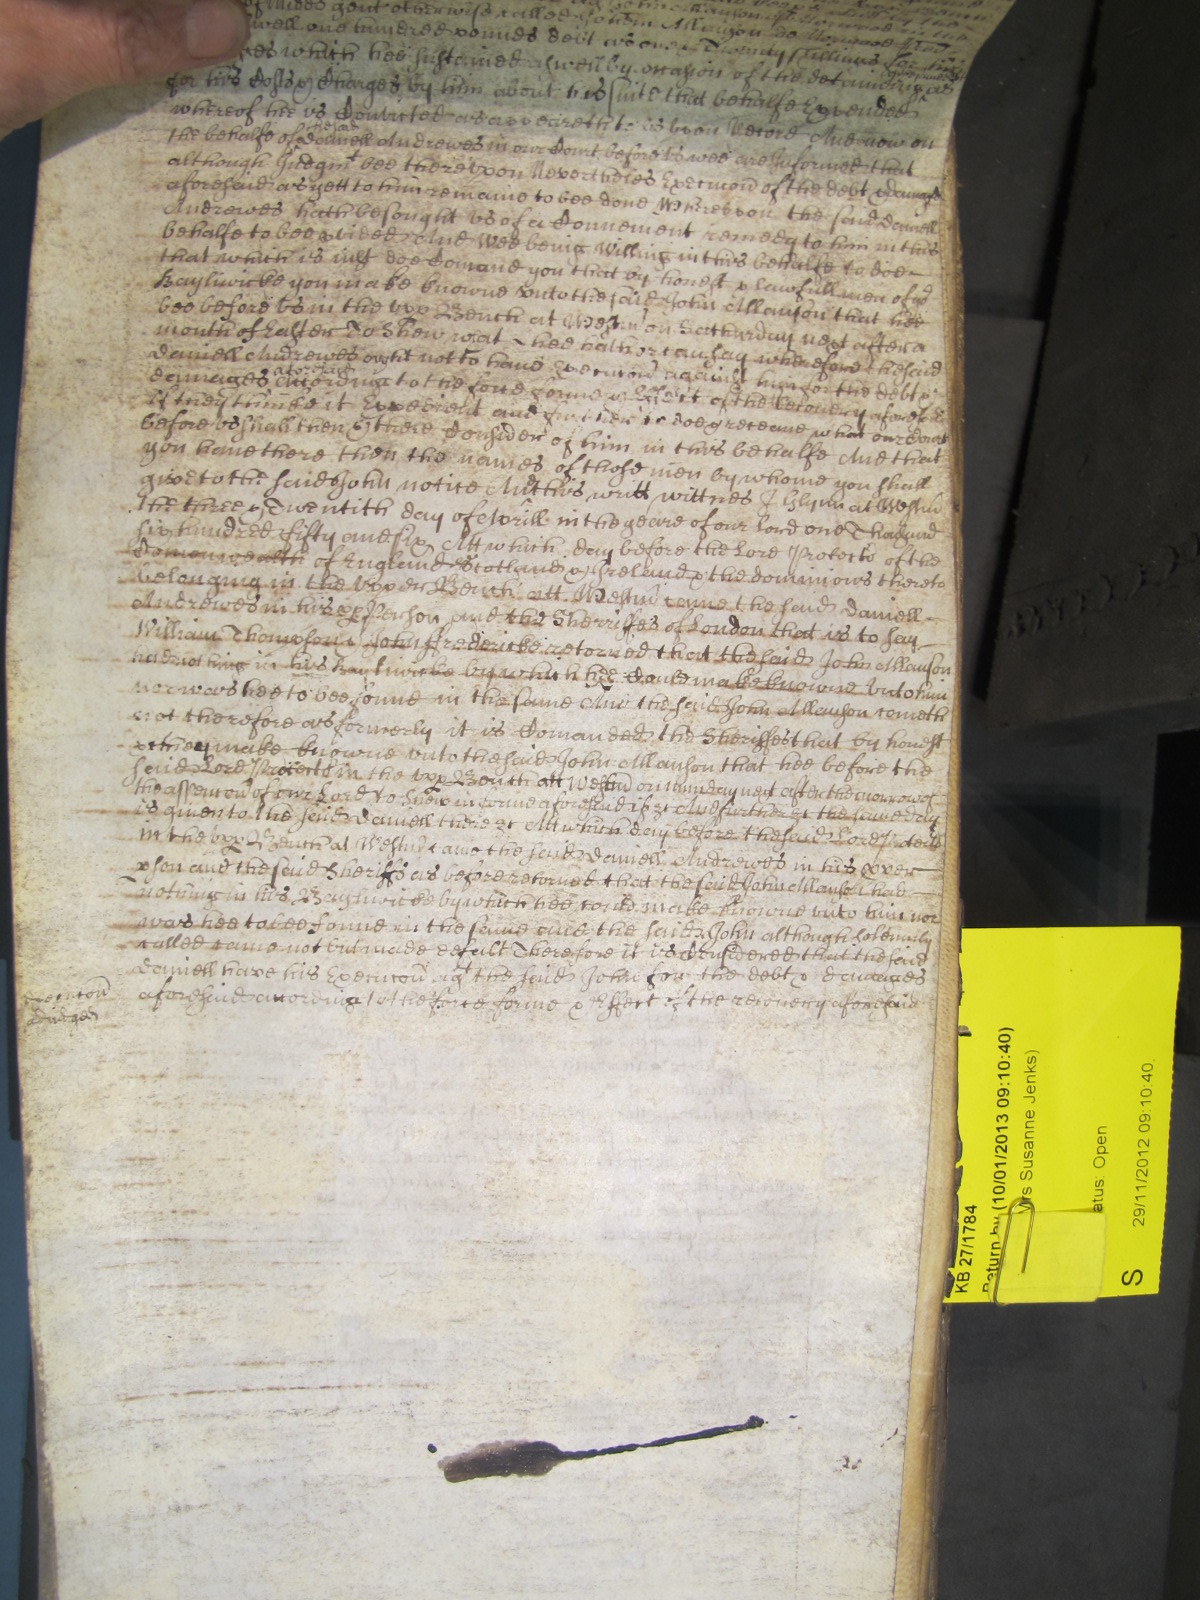 of Midds gent otherwise called John Allanson
well one hundred pounds debt as over Twenty shillings for his
which hee sustained aswell by occasion of the detaininge as
for his Costs & Charges by him about his suite that behalfe Expended
whereof hee is Convicted as appeareth to us upon Record And now on
the behalfe of the said Daniell Andrewes in our Court before us wee are Informed that
although Judgmt bee thereupon Neverthelesse Execucon of the debt & damages
aforesaid as yett to him remaine to bee done Whereupon the said Daniell
Andrewes hath besought us of a Convenient remedy to him in this
behalfe to bee provided And Wee being Willing in this behalfe to doe
that which is just doe Comand you that by honest & lawfull men of yor
Bayliwicke you make knowne unto the said John Allanson that hee
bee before us in the Upp Bench at Westmr on Satturday next after a
month of Easter To Shew wat hee hath or can say wherefore the said
Daniell Andrewes ought not to have Execucon against him for the debt &
damages aforesaid According to the force forme & Effect of the Recovery aforesd
if they thinke it Expedient and further to doe & receave what our Court
before us shall then & there Consider of him in this behalfe And that
you have there then the names of those men by whome you shall
give to the said John notice And this writt wittnes J Glynn at Westmr
the three & Twentith day of Aprill in the yeare of our Lord one Thousand
six hundred fifty and six Att which day before the Lord Protector of the
Comonwealth of England Scotland & Ireland & the dominions thereto
belonging in the Upper Bench att Westmr came the said Daniell
Andrewes in his pp Person and the Sherriffes of London that is to say
William Thompson & John ffredericke retorned that the said John Allanson
had nothing in his Bayliwicke by which hee Could make knowne unto him
nor was hee to bee found in the same And the said John Allanson cometh
not therefore as formerly it is Comanded the Sheriffes that by honest
& they make knowne unto the said John Allanson that hee before the
said Lord Protector in the Upp Bench att Westmr on munday next after the morrow of
the assention of our Lord to shew in forme aforesaid if &c And further &c the same day
is given to the said Daniell there &c Att which day before the said Lord Protector
in the Upp Bench at Westmr came the said Daniell Andrewes in his proper
pson and the said Sheriffs as before retorned that the said John Allanson had
nothing in his Bayliwicke by which hee could make knowne unto him nor
was hee to bee found in the same and the said John although solemnly
called came not but made default Therefore it is Considered that the said
Daniell have his Execucon agt the said John for the debt & damages
aforesaid according to the force forme & Effect of the recovery aforesaid
Execucon
KB 27/1784
Return by (10/01/2013 09:10:40)
Mrs Susanne Jenks)
atus: Open
S
29/11/2012 09:10:40